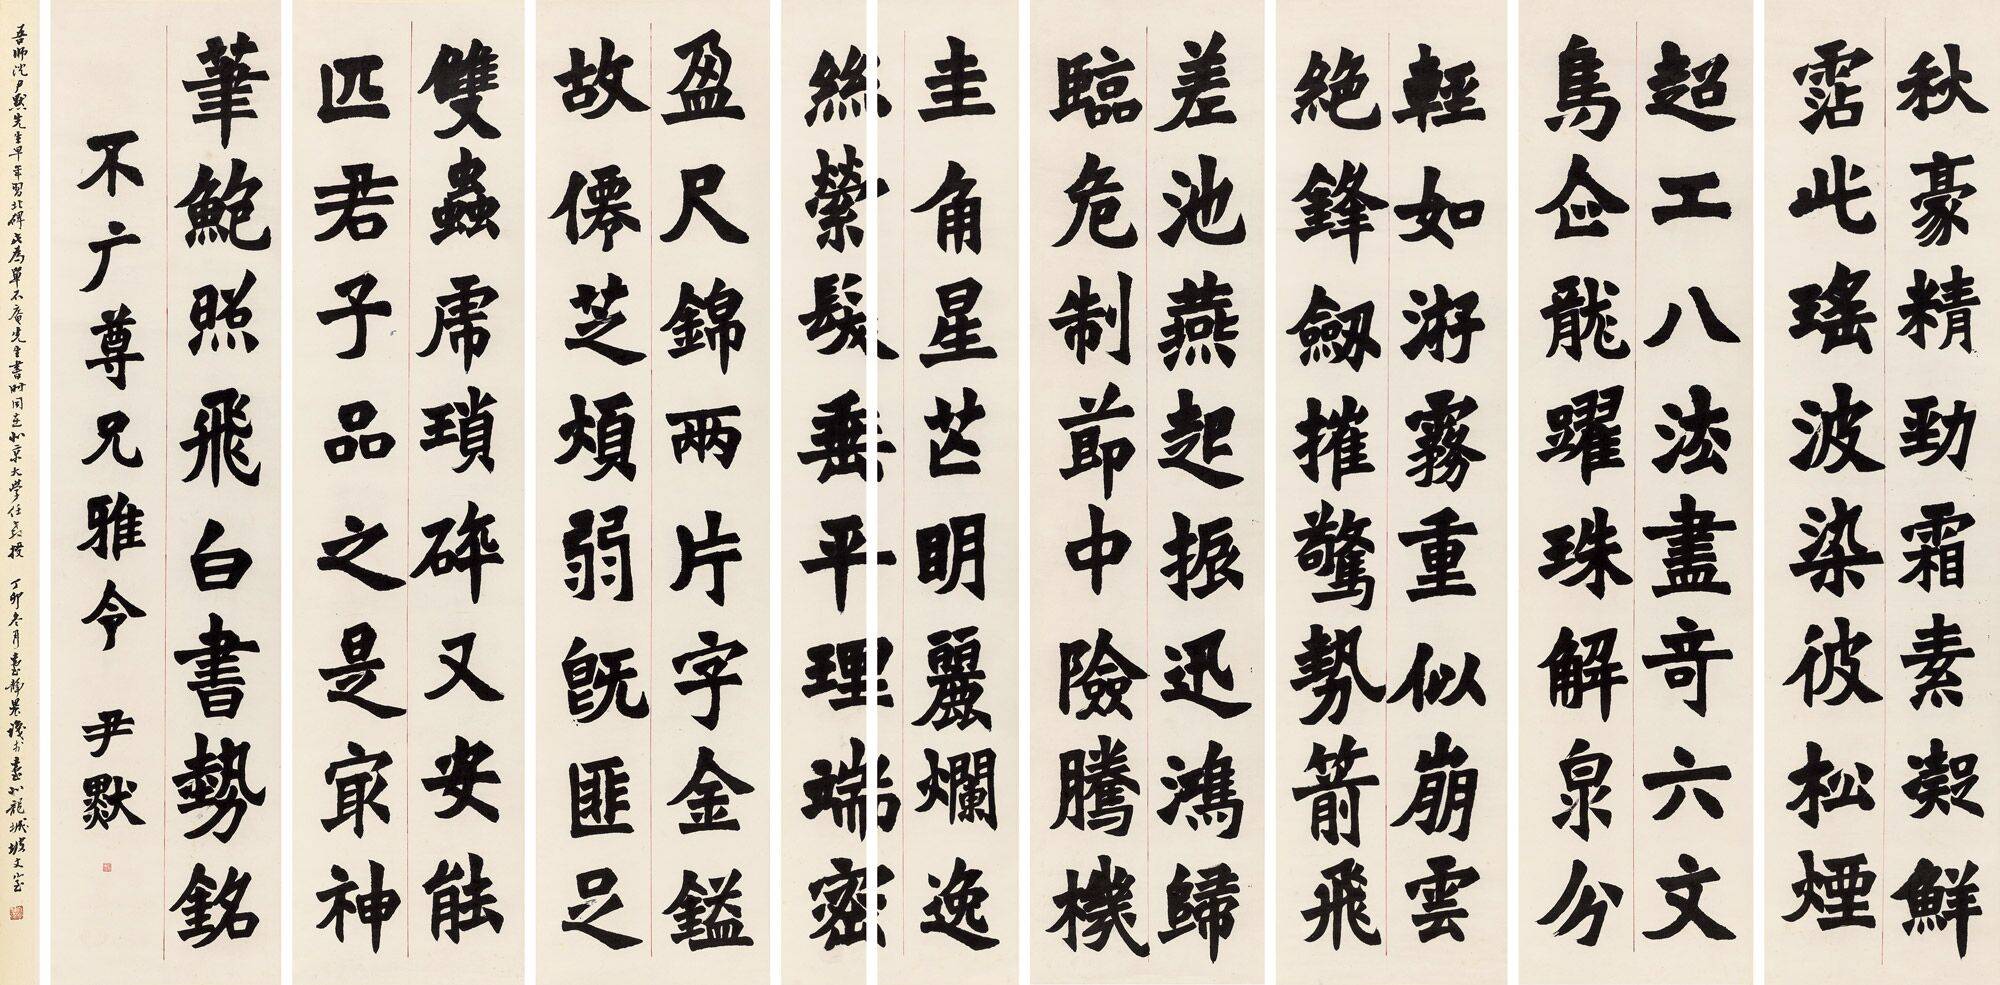 秋豪精勁霜素凝鮮
霑此瑤波染彼松煙
超工八法盡奇六文
鳥企龍躍珠解泉分
輕如游霧重似崩雲
絕鋒劔摧驚勢箭飛
差池燕起振迅鴻歸
臨危制節中險騰機
圭角星芒明麗爛逸
絲縈髮垂平理端密
盈尺錦兩片字金鎰
故僊芝煩弱旣匪足
雙蟲虎瑣碎又安能
匹君子品之是冣神
筆鮑照飛白書勢銘
不广尊兄雅令 尹默
吾師沈尹默先生早年習北碑此為單不庵先生書時同在北京大學任教授 丁卯冬月臺靜農識於臺北龍坡文室